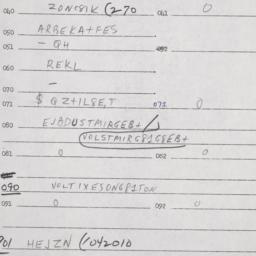 040 ZONG81K (270 041 0
050 ARBEKA+FES
051 - QH 052
060 REKL
-
070
071 $ QZ+IL8E,T 071 0
080 EJBDUSTMIRGEB+
VOLSTMIRG81G8EB+
081 0 082 0
090 VOLTIXESONG81TON
091 0 092 0
901 HEJZN (042010